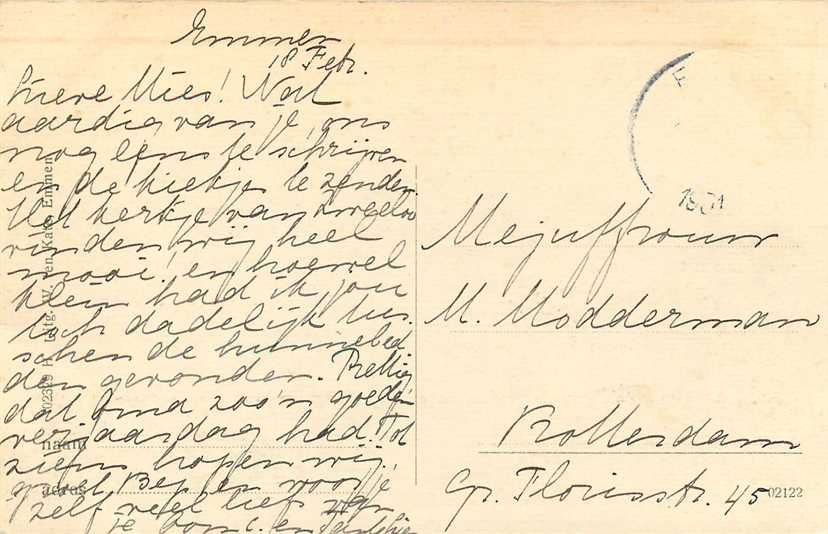 Emmen
18 Febr.
Lieve Mies! Wat
aardig van je, ons
nog eens te schrijven
en de kiekjes te zenden.
Het kerkje van Zweeloo
vinden wij heel
mooi! en hoewel
klein had ik jou
toch dadelijk tus-
schen de hunnebed-
den gevonden. Prettig
dat Bund zoo'n goede
verjaardag had! Tot
ziens hopen wij,
groet Bep en voor je
zelf veel liefs van
je oom C. en
Mejuffrouw
M. Modderman
Rotterdam
Gr. Florisstr. 45
naam
adres
02122
Uitg. W. ten Kate, Emmen